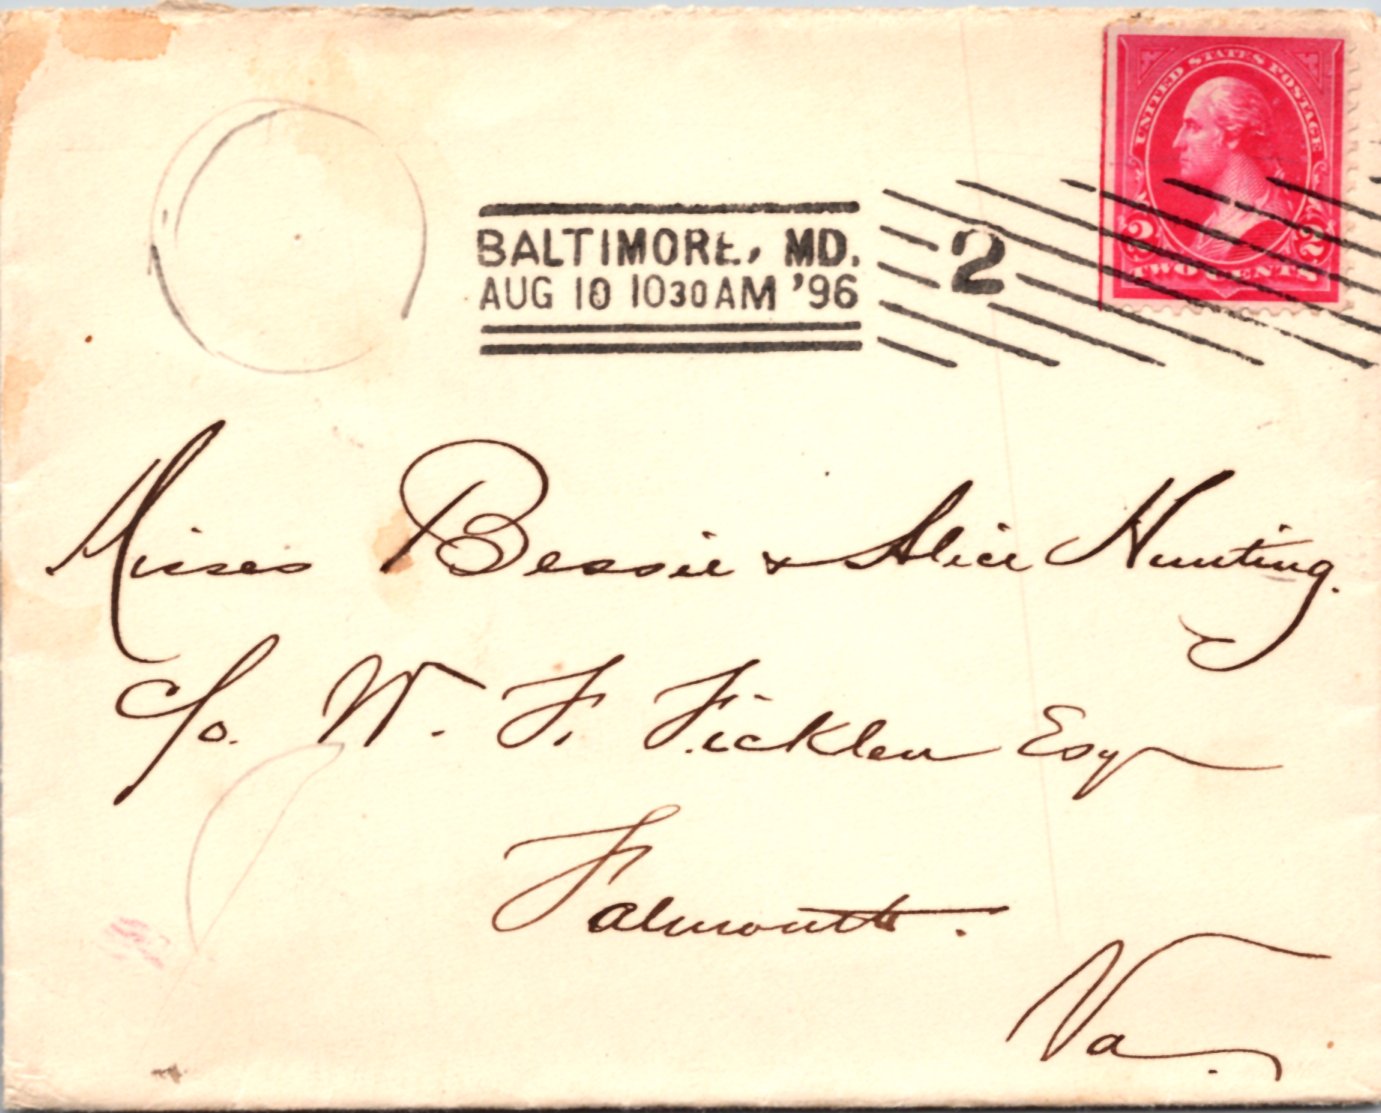 UNITED STATES POSTAGE
2 2
TWO CENTS
BALTIMORE, MD.
AUG 10 1030AM '96
2
Misses Bessie & Alice Hunting.
c/o. W. F. Ficklen Esq
Falmouth.
Va.